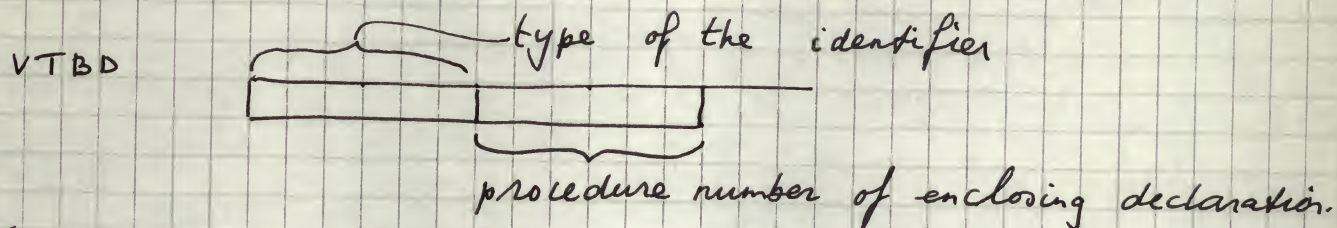 type of the identifier
VTBD
procedure number of enclosing declaration.